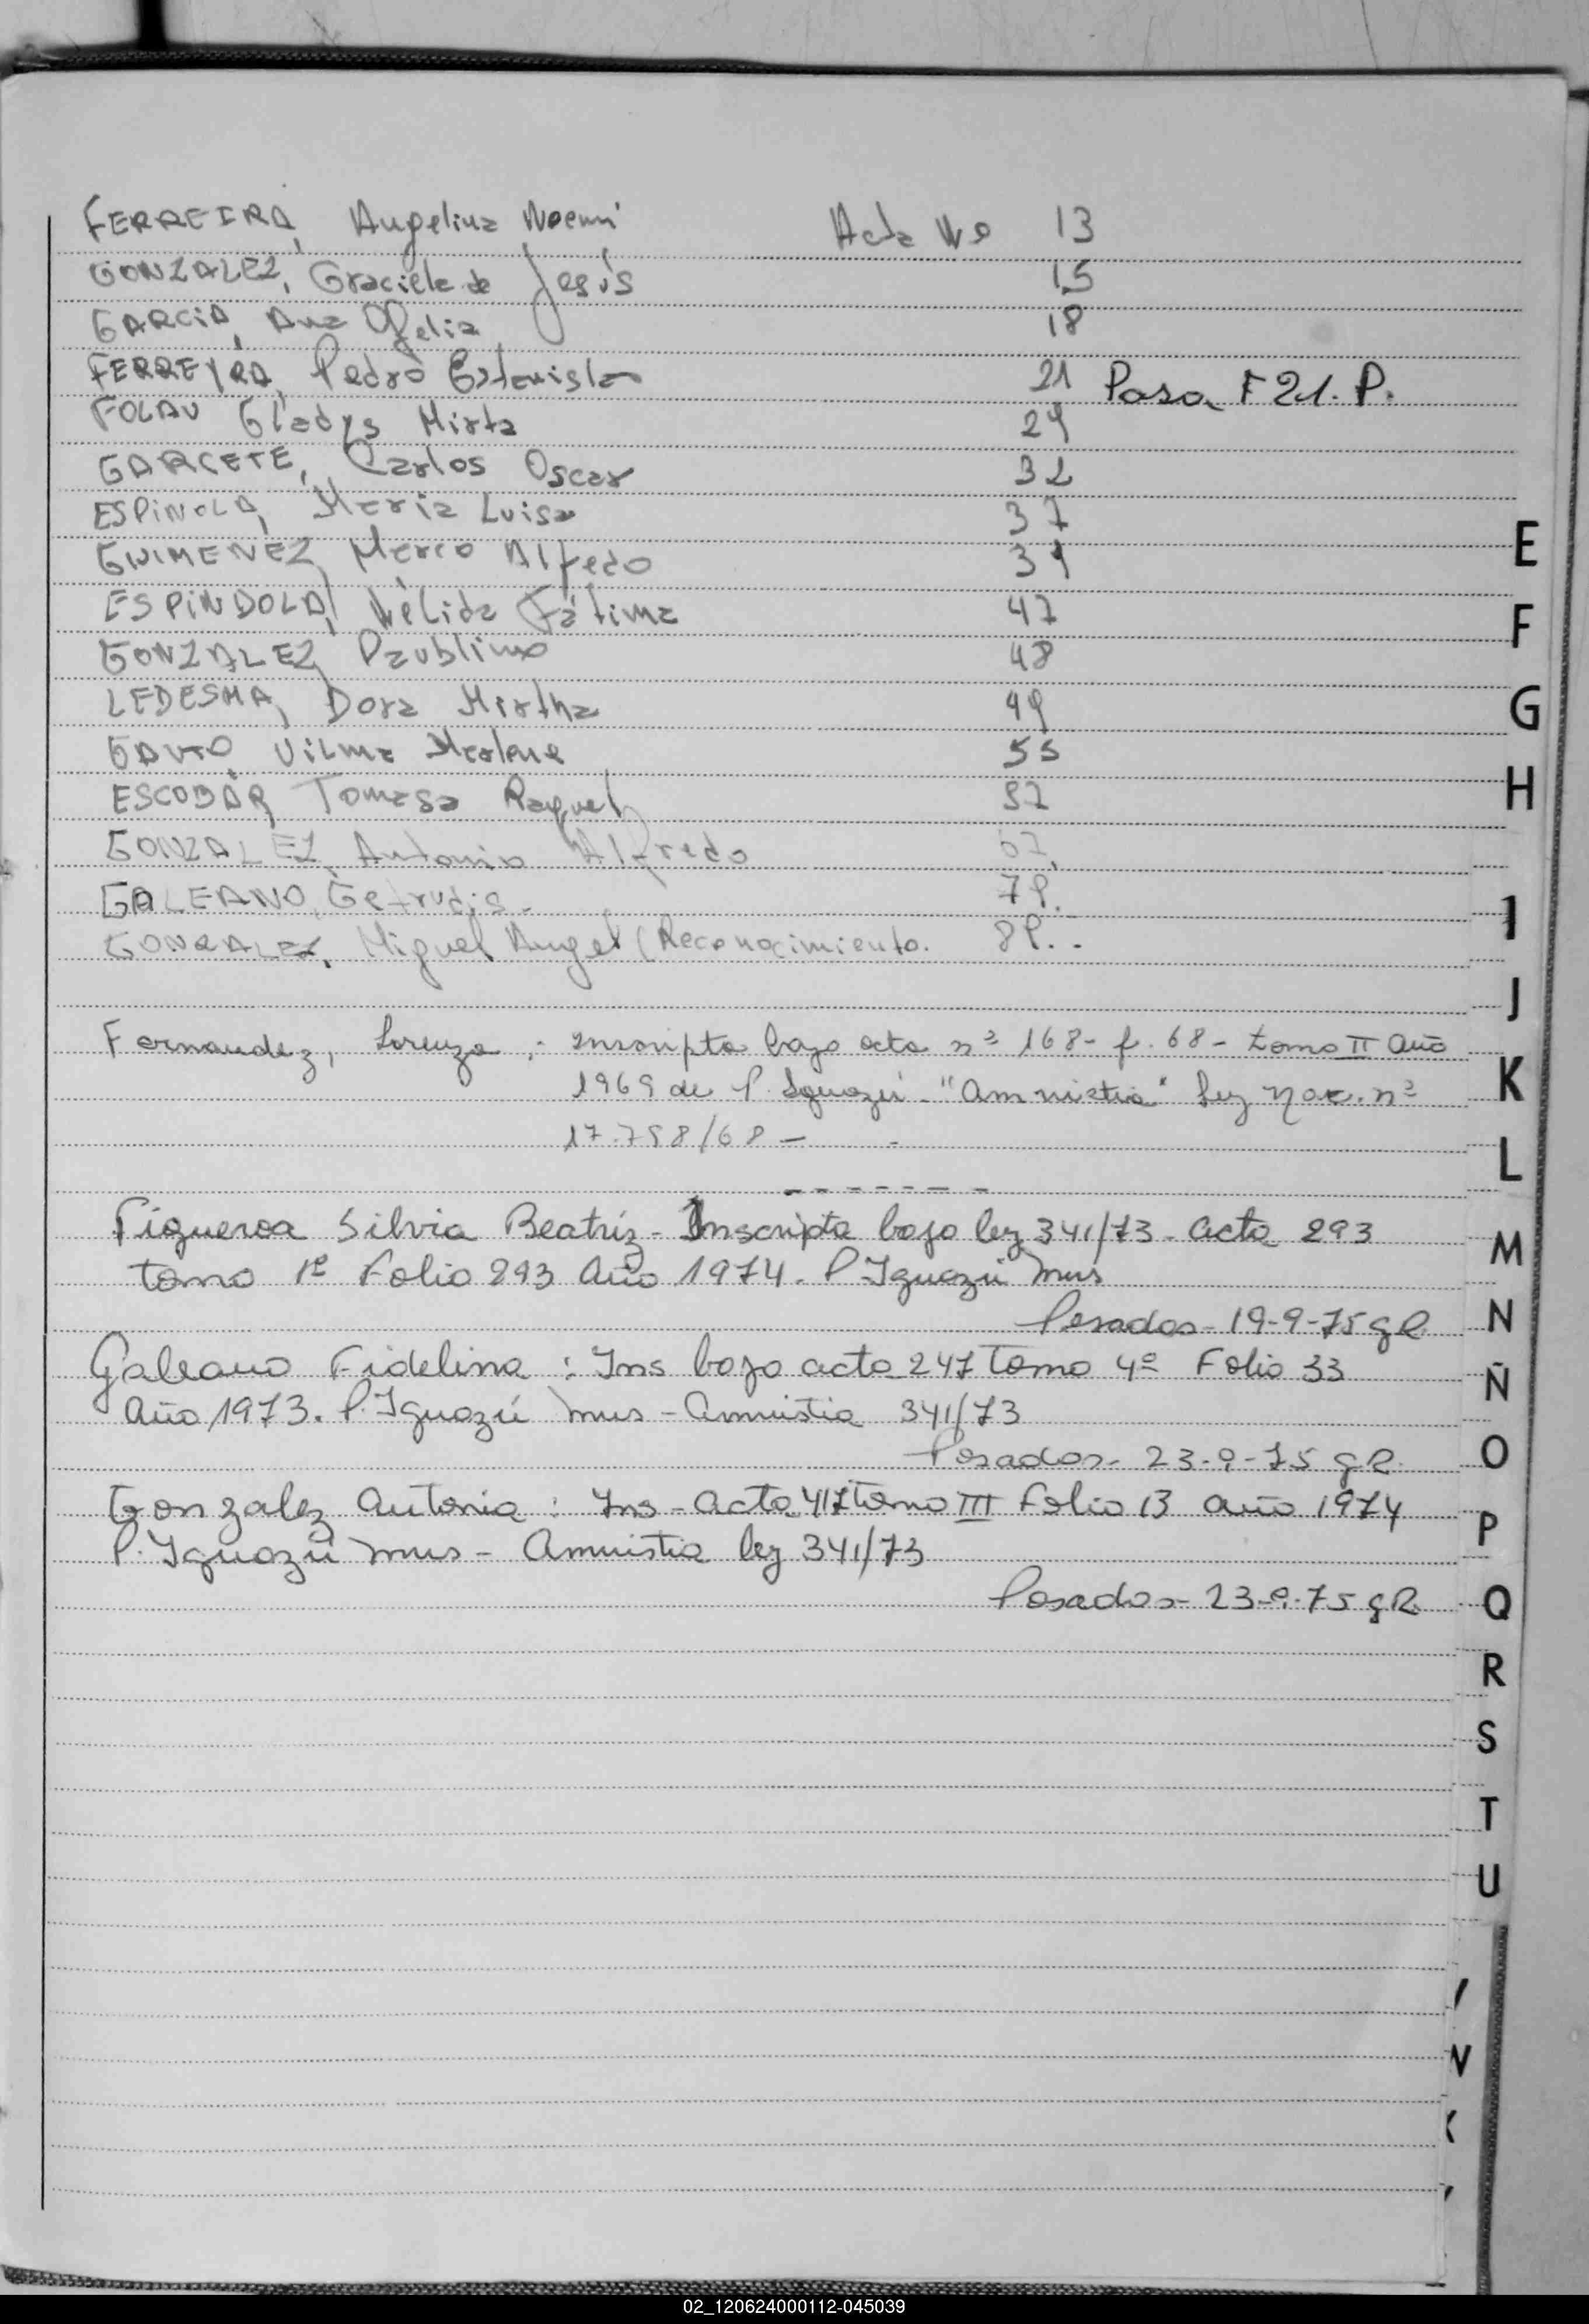 FERREIRA, Angelina Noemí Acta Nº 13
GONZALEZ, Graciela de Jesús 15
GARCIA, Ana Ofelia 18
FERREYRA, Pedro Estanislao 21 Pasa F 21. P.
FOLAU Gladys Mirta 29
GARCETE, Carlos Oscar 32
ESPINOLA, Maria Luisa 37
GUIMENEZ, Marco Alfedo 39
ESPINDOLA, Nélida Fátima 47
GONZALEZ, Paublino 48
LEDESMA, Dora Mirtha 49
GAUTO Vilma Marlene 55
ESCOBAR, Tomasa Raquel 57
GONZALEZ, Antonio Alfredo 67.
GALEANO, Getrudis.
GONZALEZ, Miguel Angel (Reconocimiento.
Fernandez, Lorenza :- inscripta bajo acta nº 168- f. 68- tomo II año
1969 de P. Iguazú - "Amnistia" Ley nac. nº
17.798/68 -
Figueroa Silvia Beatriz - Inscripta bajo ley 341/73 - acta 293
tomo 1º Folio 293 Año 1974. P Iguazú Mns
Posadas - 19-9-75 gR
Galeano Fidelina : Ins bajo acta 247 Tomo 4º Folio 33
año 1973. P. Iguazú Mns - Amnistia 341/73
Posadas - 23-9-75 gR.
Gonzalez Antonia : Ins - acta 417 tomo III Folio 13 año 1974
P. Iguazú Mns - Amnistia ley 341/73
Posadas - 23-9-75 gR
E
F
G
H
I
J
K
L
M
N
Ñ
O
P
Q
R
S
T
U
02_120624000112-045039